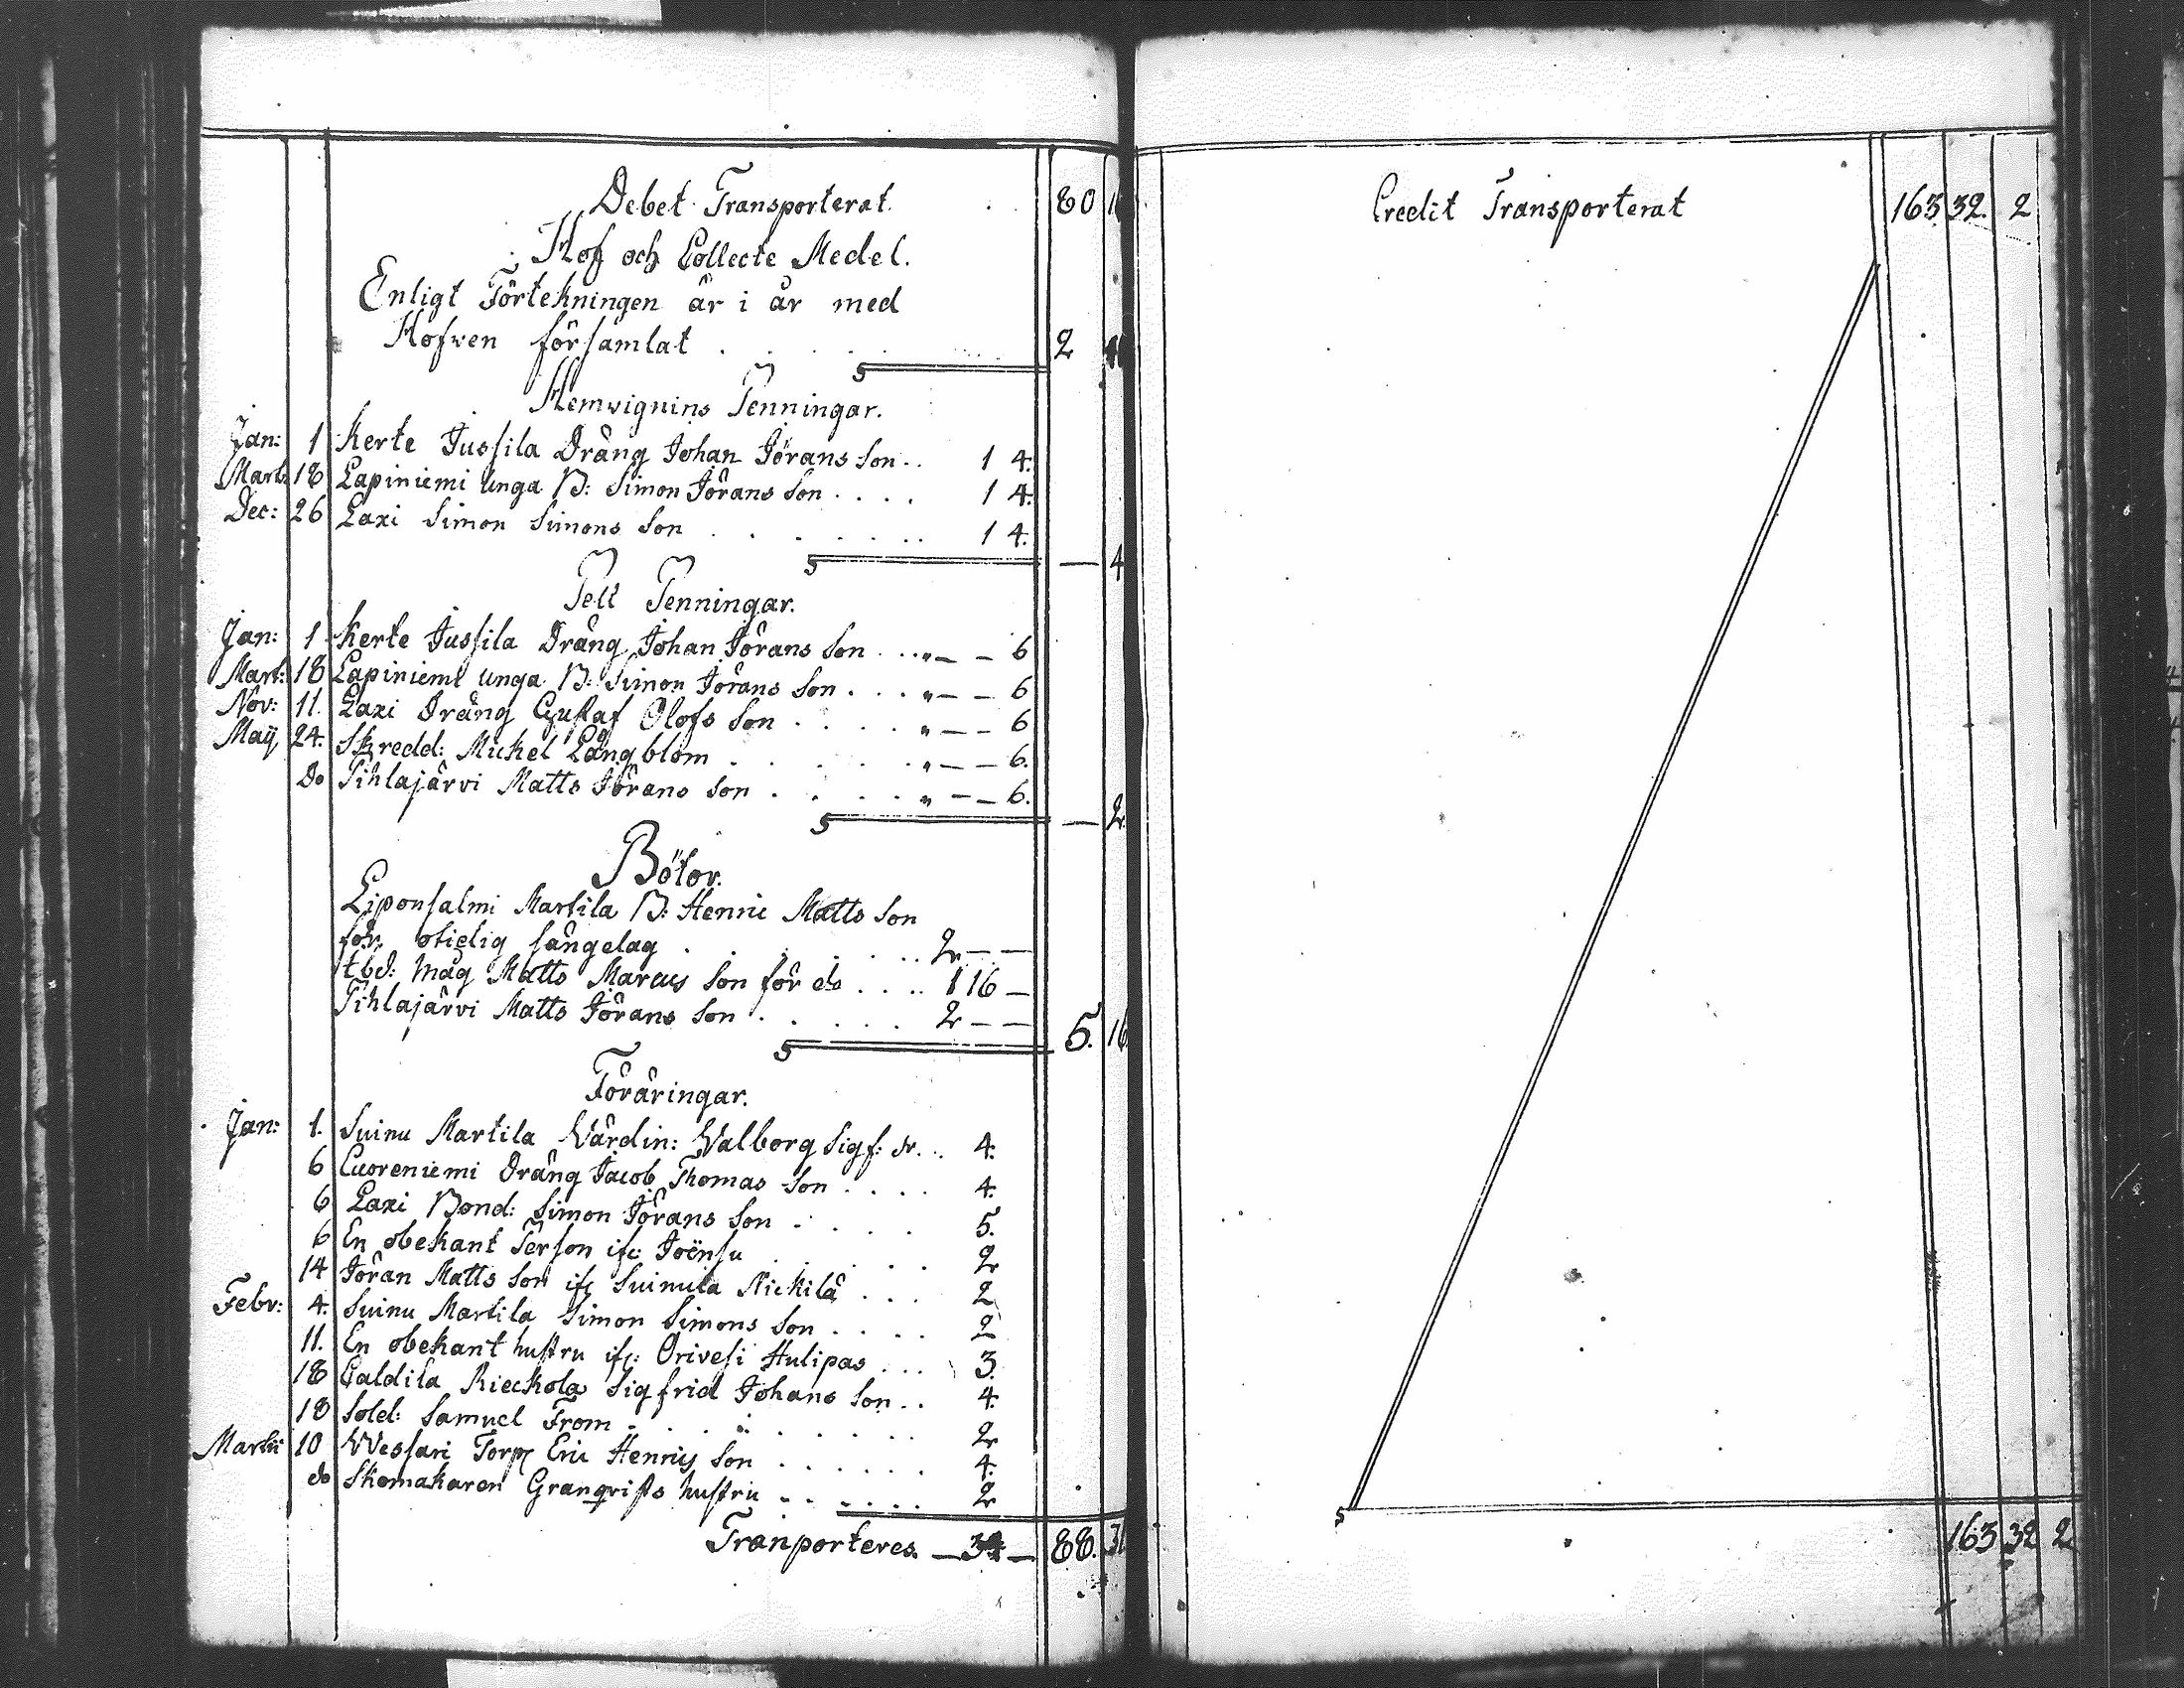 Debet Transporterat. . . 80
Hof och Collecte Medel.
Enligt Förtekningen är i år med
Hofwen församlat . . . . . 2
Hemwignins Penningar.
Jan: 1 Kerte Jussila Dräng Johan Jörans Son . . 1 4.
Mart: 18 Lapiniemi unga B: Simon Jörans Son . . . . 1 4.
Dec: 26 Laxi Simon Simons Son . . . . . . 1 4.
— 4
Pell Penningar.
Jan: 1 Kerte Jussila Dräng Johan Jörans Son . . . „ — — 6
Mart: 18 Lapiniemi unga B: Simon Jörans Son . . . „ — — 6
Nov: 11. Laxi Dräng Gustaf Olofs Son . . . . „ — — 6
Maÿ 24. Skredd: Mickel Långblom . . . . . „ — — 6.
Do Pihlajärvi Matts Jörans Son . . . . „ — — 6.
— 2
Böter.
Liponsalmi Martila B: Henric Matts Son
för otidig sängelag . . . . . . 2 — —
tbd: måg Matts Marcus Son för do . . . . 1 16 —
Pihlajärvi Matts Jörans Son . . . . . 2 — —
5. 16.
Föräringar.
Jan: 1. Suinu Martila Wärdin: Walborg Sigf: dr. . . 4.
6 Cuoreniemi Dräng Jacob Thomas Son . . . . 4.
6 Laxi Bond: Simon Jörans Son . . . . 5.
6 En obekant Person ifr: Joënsu . . . . . 2
14 Jöran Matts Son ifr Suinula Nickilä . . . 2
Febr: 4. Suinu Martila Simon Simons Son . . . . 2
11. En obekant hustru ifr: Orivesi Hulipas . . . 3.
18 Caldila Rieckola Sigfrid Johans Son . . 4.
18 Sold: Samuel From . . . . . . . 2
Martii 10 Wessari Torp: Eric Henrics Son . . . . . . 4.
do Skomakaren Granqvists hustru . . . . . . 2
Tranporteres. — 34 — 88.
Credit Transporterat 163 32. 2
163 32 2